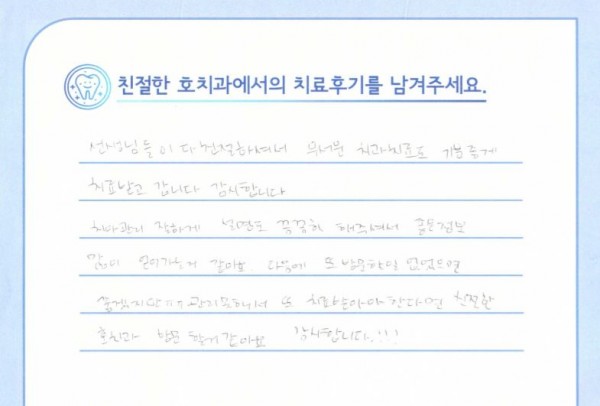 친절한 호치과에서의 치료후기를 남겨주세요.
선생님들이 다 친절하셔서 무서운 치과치료도 기분좋게
치료받고 갑니다 감사합니다
치아관리 잘하게 설명도 꼼꼼히 해주셔서 좋은정보
많이 얻어가는거 같아요 다음에 또 방문할일 없었으면
좋겠지만ㅠㅠ 관리못해서 또 치료받아야 한다면 친절한
호치과 방문 할거같아요 감사합니다.!!!